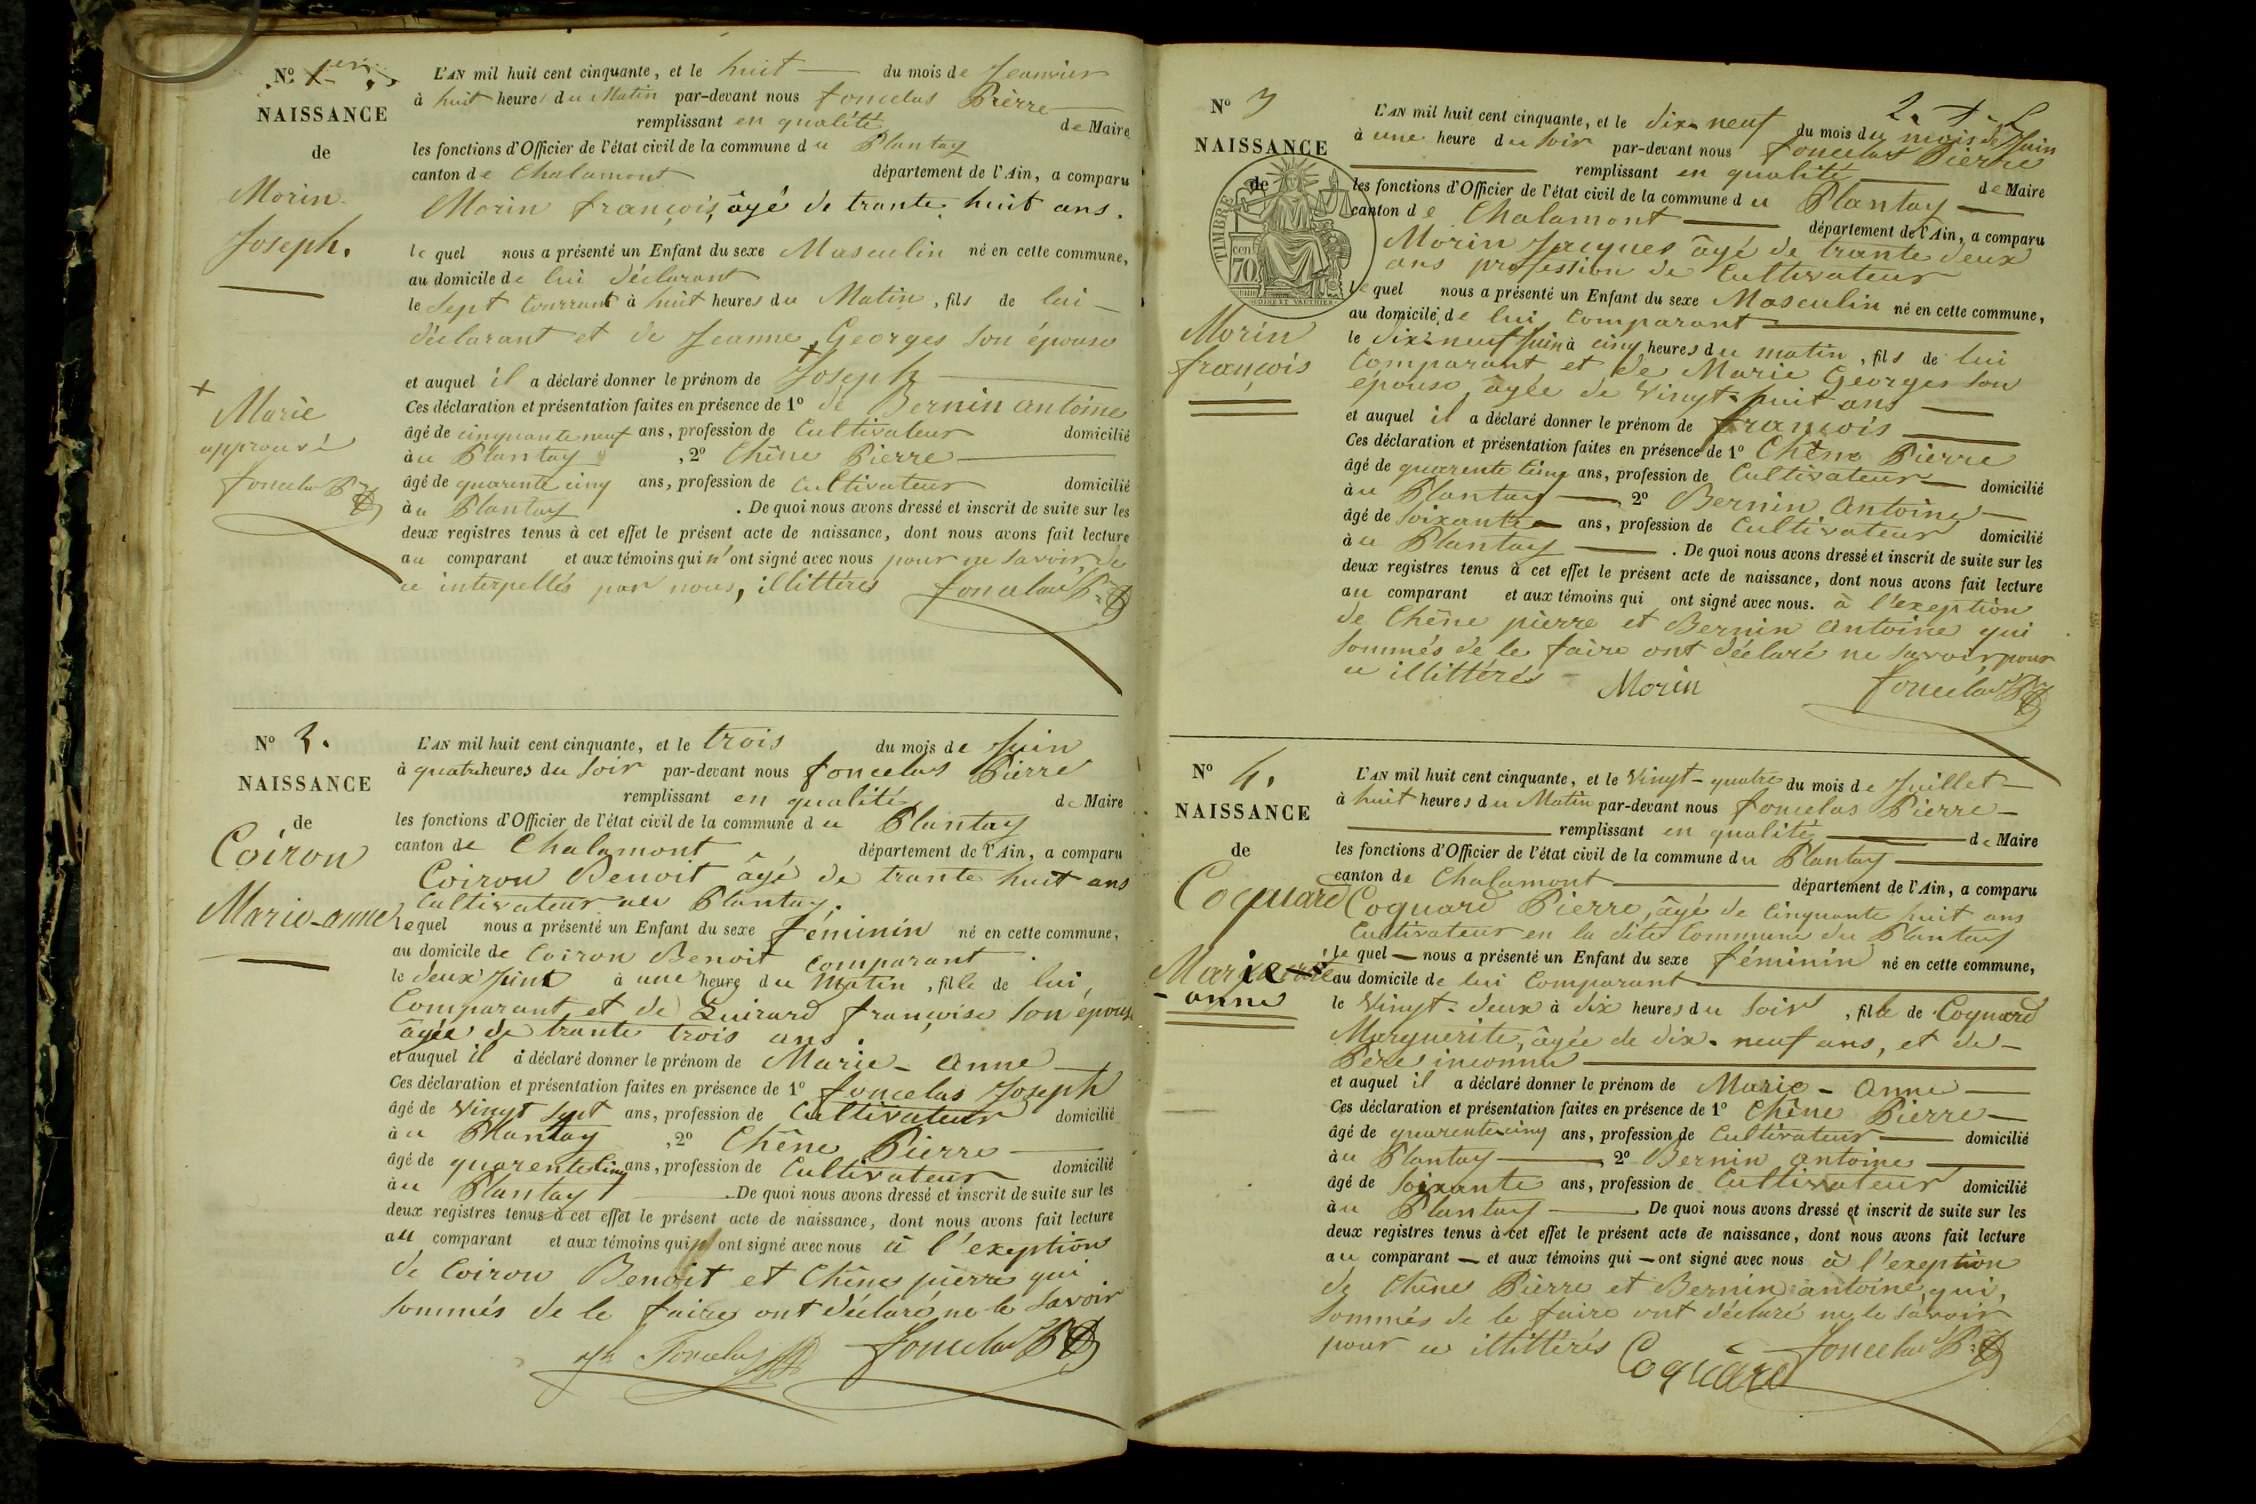 Nº 1er
NAISSANCE
de
Morin
Joseph.
L'AN mil huit cent cinquante, et le huit du mois de Jeanvier
à huit heures du Matin par-devant nous Joncelas Pièrre
remplissant en qualité de Maire
les fonctions d'Officier de l'état civil de la commune du Plantay
canton de Chalamont département de l'Ain, a comparu
Morin françois, âgé de trante huit ans.
le quel nous a présenté un Enfant du sexe Masculin né en cette commune,
au domicile de lui déclarant
le Sept Courrant à huit heures du Matin, fils de lui
déclarant et de Jeanne + Georges son épouse
et auquel il a déclaré donner le prénom de Joseph
Ces déclaration et présentation faites en présence de 1º de Bernin antoine
âgé de cinquante neuf ans, profession de Cultivateur domicilié
au Plantay, 2º Chêne Pierre
âgé de quarente cinq ans, profession de Cultivateur domicilié
au Plantay. De quoi nous avons dressé et inscrit de suite sur les
deux registres tenus à cet effet le présent acte de naissance, dont nous avons fait lecture
au comparant et aux témoins qui n'ont signé avec nous pour ne savoir, de
ce interpellés par nous, illittérés Joncelas P.
+ Marie
approuvé
Joncelas P.
Nº 2.
NAISSANCE
de
Coiron
Marie-anne
L'AN mil huit cent cinquante, et le trois du mois de Juin
à quatre heures du soir par-devant nous Joncelas Pierre
remplissant en qualité de Maire
les fonctions d'Officier de l'état civil de la commune du Plantay
canton de Chalamont département de l'Ain, a comparu
Coiron Benoit âgé de trante huit ans
Cultivateur au Plantay.
le quel nous a présenté un Enfant du sexe féminin né en cette commune,
au domicile de Coiron Benoit comparant.
le deux Juin à une heure du Matin, fille de lui,
Comparant et de Guirard françoise son épouse
âgée de trante trois ans.
et auquel il a déclaré donner le prénom de Marie-anne
Ces déclaration et présentation faites en présence de 1º Joncelas Joseph
âgé de vingt sept ans, profession de Cultivateur domicilié
au Plantay, 2º Chêne Pierre
âgé de quarente cinq ans, profession de Cultivateur domicilié
au Plantay. De quoi nous avons dressé et inscrit de suite sur les
deux registres tenus à cet effet le présent acte de naissance, dont nous avons fait lecture
au comparant et aux témoins qui ont signé avec nous à l'exeption
de Coiron Benoit et Chêne pierre qui
sommés de le faire ont déclaré ne le savoir
Jh Joncelas Joncelas P.
2.
Nº 3
NAISSANCE
de
TIMBRE
cen 70
Morin
françois
L'AN mil huit cent cinquante, et le dix-neuf du mois du mois de Juin
à une heure du soir par-devant nous Joncelas Pierre
remplissant en qualité de Maire
les fonctions d'Officier de l'état civil de la commune du Plantay
canton de Chalamont département de l'Ain, a comparu
Morin Jacques âgé de trante deux
ans profession de Cultivateur
le quel nous a présenté un Enfant du sexe Masculin né en cette commune,
au domicile de lui comparant
le dix-neuf Juin à cinq heures du matin, fils de lui
Comparant et de Marie Georges son
épouse âgée de vingt-huit ans
et auquel il a déclaré donner le prénom de françois
Ces déclaration et présentation faites en présence de 1º Chêne Pierre
âgé de quarente cinq ans, profession de Cultivateur domicilié
au Plantay 2º Bernin antoine
âgé de soixante ans, profession de Cultivateur domicilié
au Plantay. De quoi nous avons dressé et inscrit de suite sur les
deux registres tenus à cet effet le présent acte de naissance, dont nous avons fait lecture
au comparant et aux témoins qui ont signé avec nous. à l'exeption
de Chêne pierre et Bernin antoine qui
sommés de le faire ont déclaré ne savoir, pour
ce illittérés Morin Joncelas P.
Nº 4.
NAISSANCE
de
Coquard
Marie
-anne
L'AN mil huit cent cinquante, et le vingt-quatre du mois de Juillet
à huit heures du Matin par-devant nous Joncelas Pierre
remplissant en qualité de Maire
les fonctions d'Officier de l'état civil de la commune du Plantay
canton de Chalamont département de l'Ain, a comparu
Coquard Pierre, âgé de Cinquante huit ans
Cultivateur en la dite Commune du Plantay
Le quel nous a présenté un Enfant du sexe féminin né en cette commune,
au domicile de lui comparant
le vingt-deux à dix heures du soir, fille de Coquard
Marguerite, âgée de dix-neuf ans, et de
Père inconnu
et auquel il a déclaré donner le prénom de Marie-anne
Ces déclaration et présentation faites en présence de 1º Chêne Pierre
âgé de quarente-cinq ans, profession de Cultivateur domicilié
au Plantay, 2º Bernin antoine
âgé de soixante ans, profession de Cultivateur domicilié
au Plantay. De quoi nous avons dressé et inscrit de suite sur les
deux registres tenus à cet effet le présent acte de naissance, dont nous avons fait lecture
au comparant et aux témoins qui ont signé avec nous à l'exeption
de Chêne Pierre et Bernin antoine, qui,
sommés de le faire ont déclaré ne le savoir
pour ce illittérés Coquard Joncelas P.